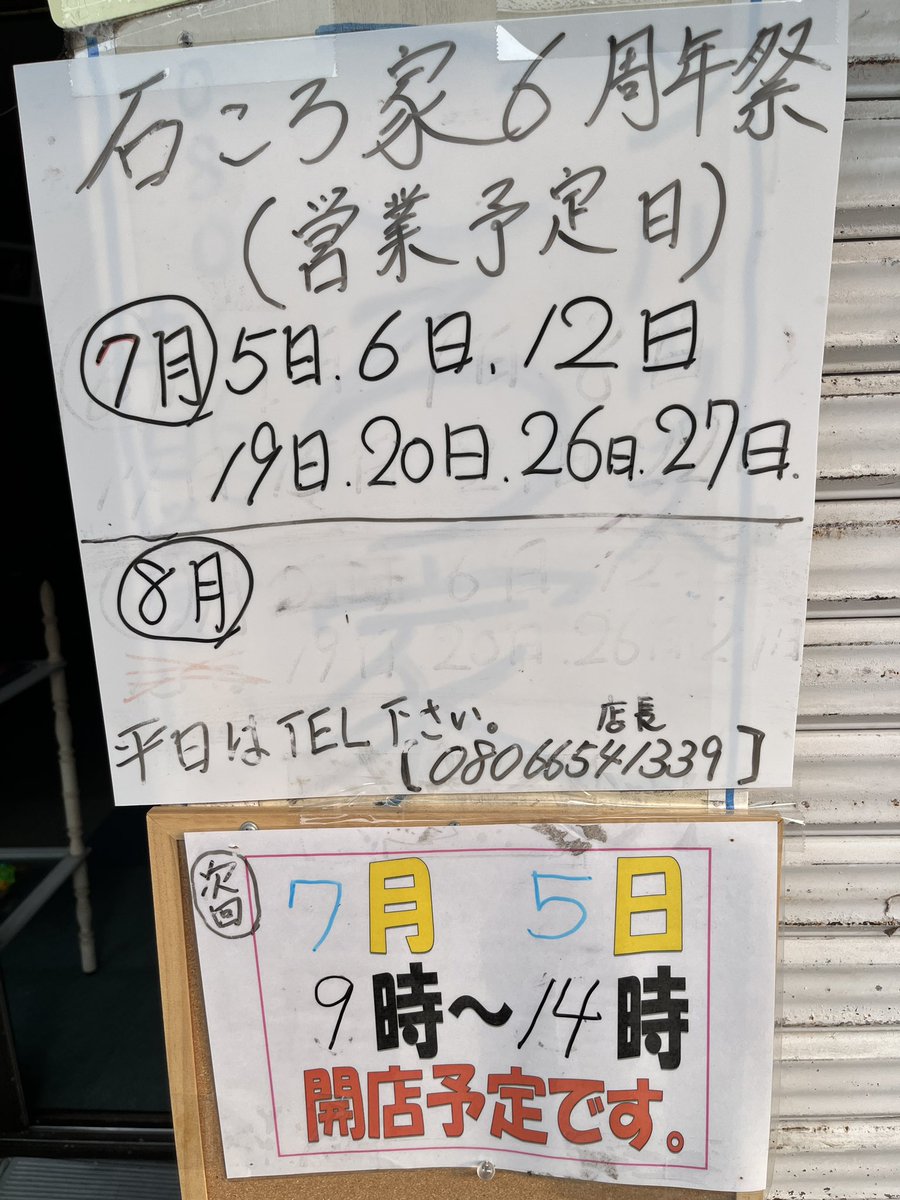 石ころ家6周年祭
(営業予定日)
7月 5日.6日.12日
19日.20日.26日.27日.
8月
平日はTEL下さい。
店長
[08066541339]
次回
7月 5日
9時～14時
開店予定です。